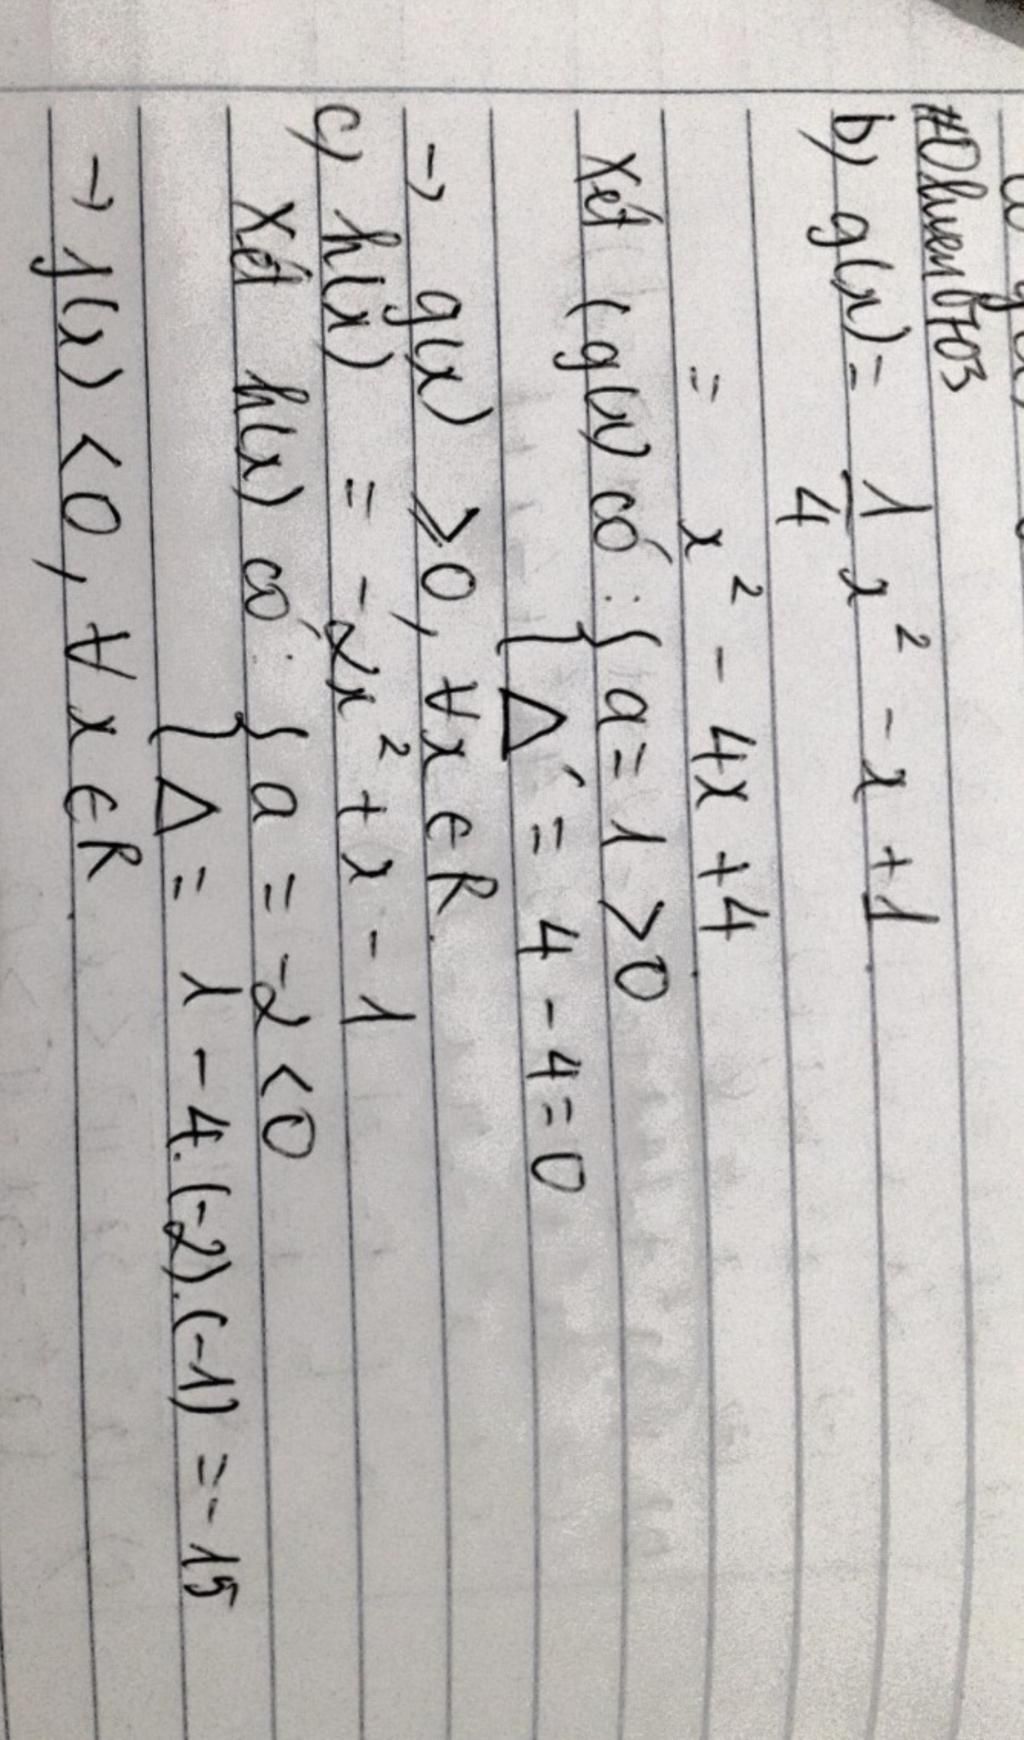 #Oliven6703
b) g(x) = 1/4 x² - x + 1
= x² - 4x + 4
Xét (g(x) có : { a = 1 > 0
Δ' = 4 - 4 = 0
→ g(x) ⩾ 0, ∀x ∈ R.
c) h(x) = -2x² + x - 1
Xét h(x) có : { a = -2 < 0
Δ = 1 - 4.(-2).(-1) = -15
→ f(x) < 0, ∀x ∈ R